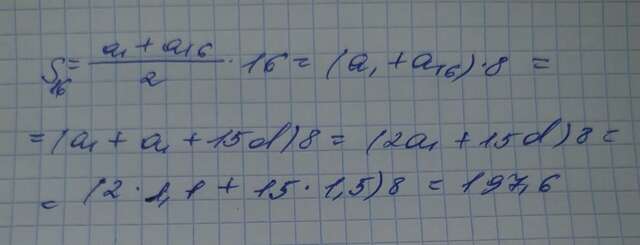 S₁₆ = (a₁ + a₁₆)/2 · 16 = (a₁ + a₁₆) · 8 =
= (a₁ + a₁ + 15d)8 = (2a₁ + 15d)8 =
= (2 · 1,1 + 15 · 1,5)8 = 197,6